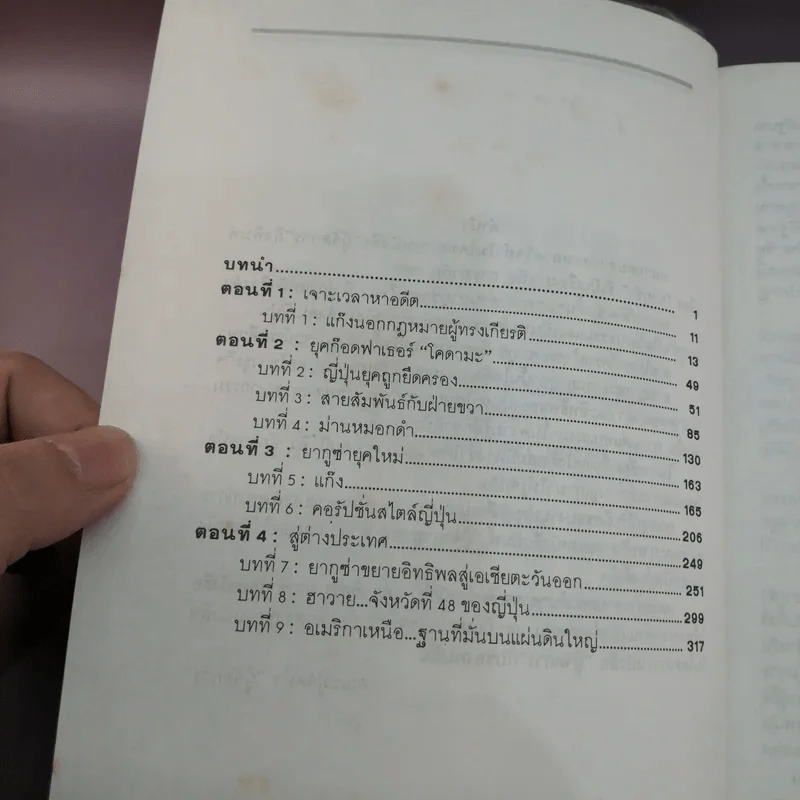 บทนำ........................................ 1
ตอนที่ 1 : เจาะเวลาหาอดีต........................................ 11
บทที่ 1 : แก๊งนอกกฎหมายผู้ทรงเกียรติ........................................ 13
ตอนที่ 2 : ยุคก๊อดฟาเธอร์ “โคดามะ”........................................ 49
บทที่ 2 : ญี่ปุ่นยุคถูกยึดครอง........................................ 51
บทที่ 3 : สายสัมพันธ์กับฝ่ายขวา........................................ 85
บทที่ 4 : ม่านหมอกดำ........................................ 130
ตอนที่ 3 : ยากูซ่ายุคใหม่........................................ 163
บทที่ 5 : แก๊ง........................................ 165
บทที่ 6 : คอรัปชั่นสไตล์ญี่ปุ่น........................................ 206
ตอนที่ 4 : สู่ต่างประเทศ........................................ 249
บทที่ 7 : ยากูซ่าขยายอิทธิพลสู่เอเชียตะวันออก........................................ 251
บทที่ 8 : ฮาวาย...จังหวัดที่ 48 ของญี่ปุ่น........................................ 299
บทที่ 9 : อเมริกาเหนือ...ฐานที่มั่นบนแผ่นดินใหญ่........................................ 317